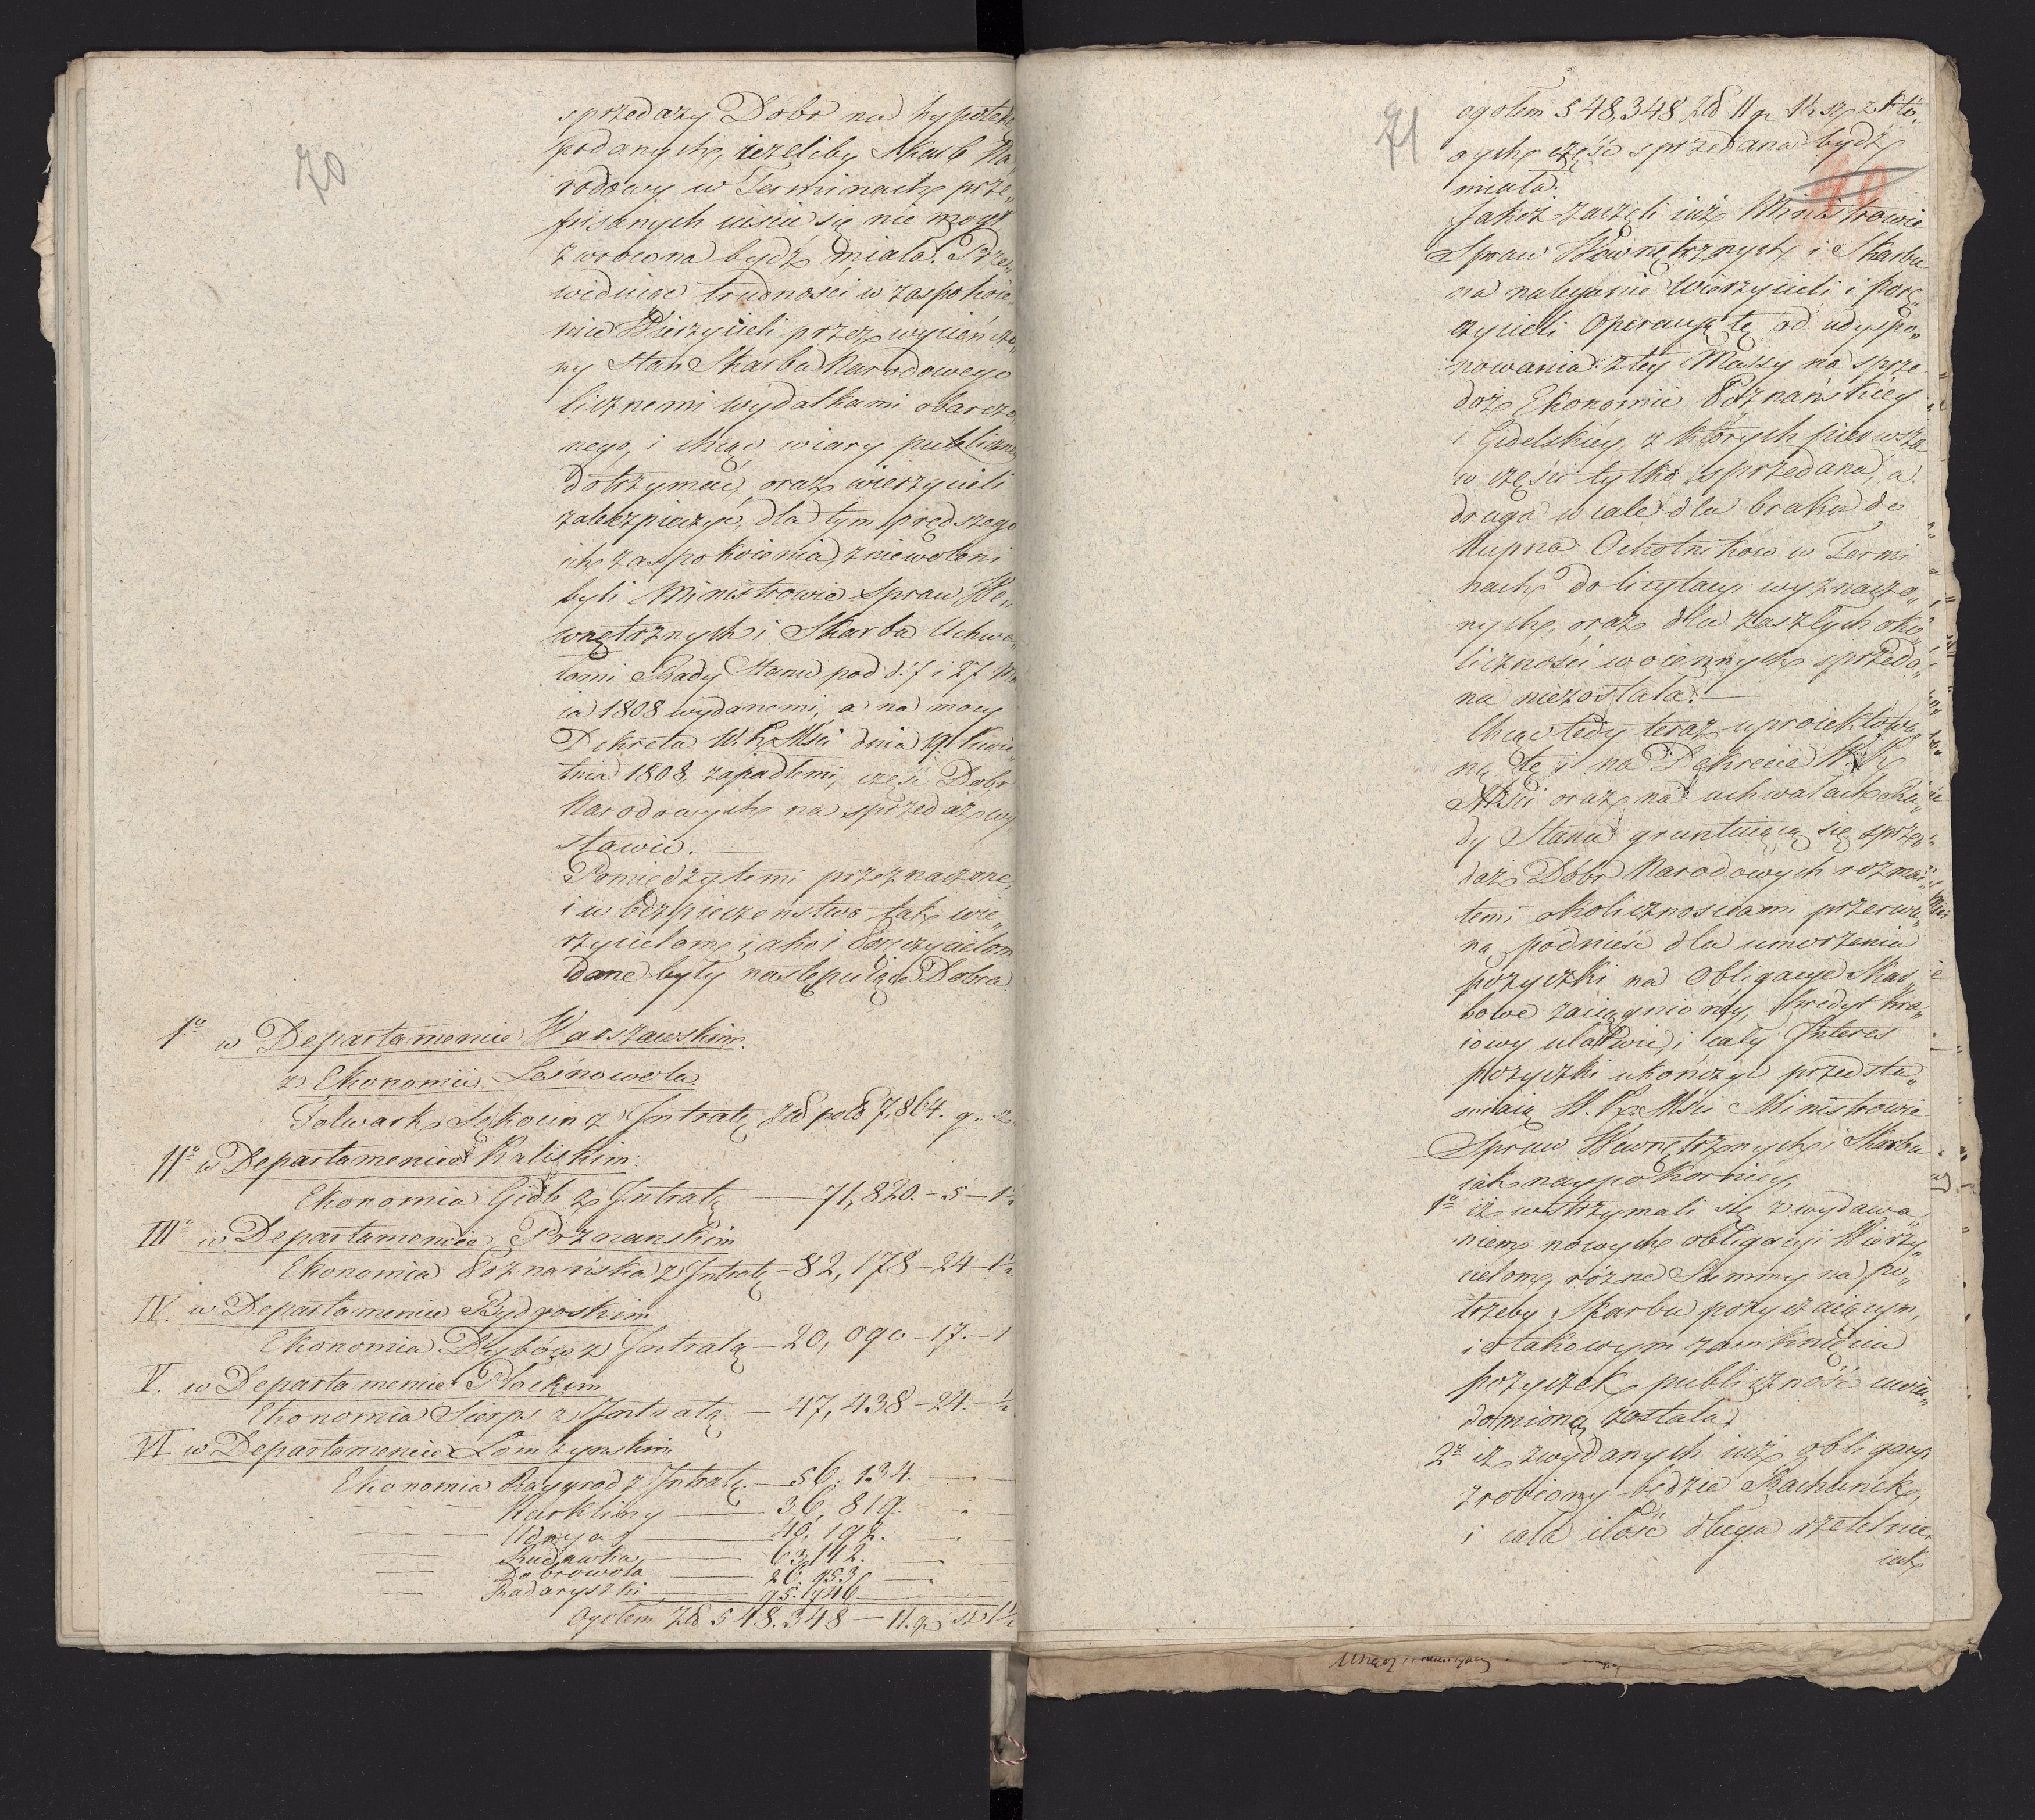 70
sprzedaży Dobr na hypotekę
podanych, ieżeliby Skarb Na„
rodowy w Terminach prze„
pisanych uiścić się nie mógł
zwrócona bydź miała. Prze„
widuiąc trudności w zaspokoie„
niu Wierzycieli przez wycieńczo„
ny stan Skarbu Narodowego
licznemi wydatkami obarczo„
nego, i chcąc wiary publiczney
dotrzymać, oraz wierzycieli
zabezpieczyć, dla tym prędszego
ich zaspokoienia, zniewoleni
byli Ministrowie Spraw We„
wnętrznych i Skarbu Uchwa„
łami Rady Stanu pod d. 7 i 27 Ma
ia 1808 wydanemi, a na mocy
Dekretu W. K. Mści dnia 19. Kwie„
tnia 1808. zapadłemi, część Dobr
Narodowych na sprzedaż wy
stawić. —
Pomiędzy temi przeznaczone,
i w bezpieczeństwo tak wie„
rzycielom, iako i Poręczycielom
dane były następuiące Dobra
1o w Departamencie Warszawskim.
z Ekonomii Leśnowola
Folwark Sękocin z Intratą Zł pols 7,864. g. sz
IIo w Departamencie Kaliskim.
Ekonomia Gidle z Intratą — 71,820. – 5 – 1½
IIIo w Departamencie Poznanskim
Ekonomia Poznańska z Intratą – 82,178 – 24 – 1½
IV. w Departamencie Bydgoskim
Ekonomia Dybów z Intratą – 20,090 – 17. – 1
V. w Departamencie Płockim
Ekonomia Sierps z Intratą – 47,438 – 24. – ½
VI w Departamencie Łomżynskim
Ekonomia Raygrod z Intratą. – 56,134. —
— — Kirkliny — 36,819. —
— Udrya — 40,192. —
— Rudawka — 63,142. —
— Dobrowola — 26.953 —
— Kadaryszki — 95.1746 —
Ogołem Zł 548.348 – 11. g. sz 1½
71
ogołem 548,348 zł 11 g. 1½ sz, z któ„
rych część sprzedana bydź
miała.
70
Jakoż zaczęli iuż Ministrowie
Spraw Wewnętrznych i Skarbu
na naleganie Wierzycieli i Porę„
czycieli Operacyą tę od udyspo„
nowania z tey Massy na sprze„
daż Ekonomii Poznańskiey
i Gidelskiey, z których pierwsza
w części tylko sprzedana, a
druga wcale dla braku do
Kupna Ochotników w Termi
nach do licytacyi wyznaczo„
nych, oraz dla zaszłych oko„
liczności woiennych sprzeda„
na niezostała. —
Chcąc tedy teraz uproiektowa„
ną tę i na Dekrecie W. K.
Mści oraz na uchwałach Ra„
dy Stanu gruntuiącą się sprze„
daż Dóbr Narodowych rozmai„
temi okolicznościami przerwa„
ną podnieść dla umorzenia
pożyczki na Obligacye Skar„
bowe zaciągnioney, Kredyt Kra„
iowy ułatwić, i cały Interes
pożyczki ukończyć przedsta„
wiaią W. K. Mści Ministrowie
Spraw Wewnętrznych i Skarbu
iak naypokorniey,
1o iż wstrzymali się z wydawa„
niem nowych obligacyi Wierzy„
cielom różne Summy na po„
trzeby Skarbu pożyczaiącym,
i o takowym zamknięciu
pożyczek publiczność uwia„
domioną została
2o iż z wydanych iuż obligacyi
zrobiony będzie Rachunek,
i cała ilość długu rzetelnie,
iak